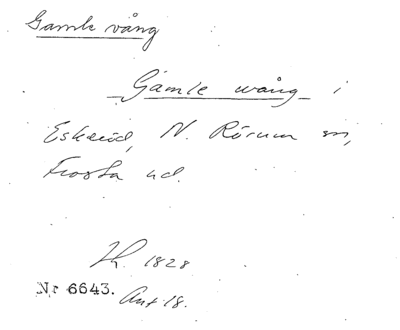 Gamle vång
Gamle wång i
Eskeröd, N. Rörum sn,
Frosta hd.
1828
Nr 6643. Ant. 18.